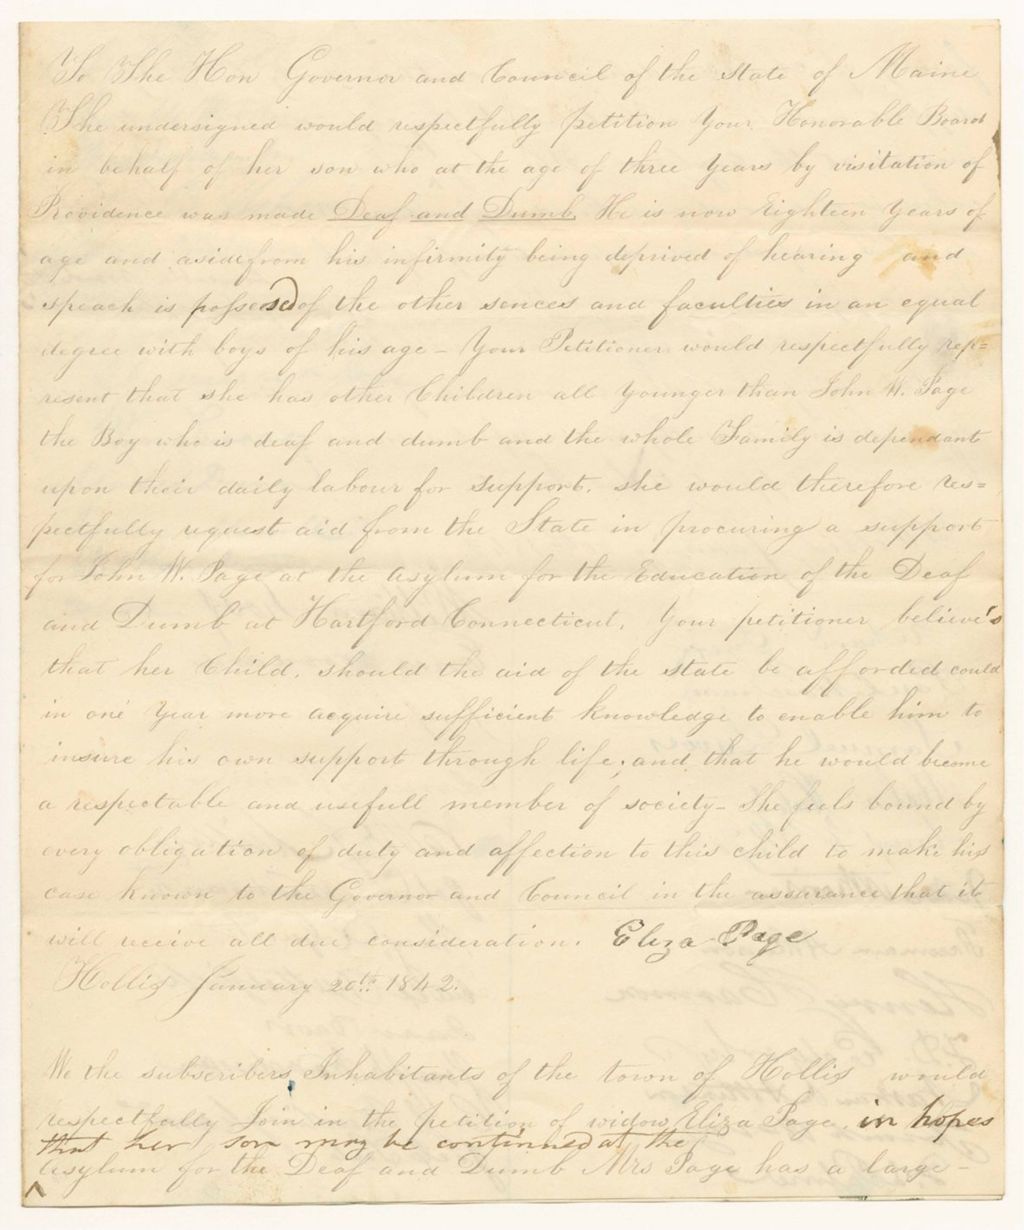 To The Hon Governor and Council of the State of Maine
The undersigned would respectfully petition Your Honorable Board
in behalf of her son who at the age of three years by visitation of
Providence was made Deaf and Dumb. He is now Eighteen Years of
age and aside from his infirmity being deprived of hearing and
speach is possessed of the other sences and faculties in an equal
degree with boys of his age - Your Petitioner would respectfully rep=
resent that she has other Children all younger than John W. Page
the Boy who is deaf and dumb and the whole Family is dependant
upon their daily labour for support. she would therefore res=
pectfully request aid from the State in procuring a support
for John W. Page at the Asylum for the Education of the Deaf
and Dumb at Hartford Connecticut. Your petitioner believe's
that her Child, should the aid of the state be afforded could
in one Year more acquire sufficient knowledge to enable him to
insure his own support through life; and that he would become
a respectable and usefull member of society - She feels bound by
every obligation of duty and affection to this child to make his
case known to the Governor and Council in the assurance that it
will receive all due consideration. Eliza Page
Hollis January 20th 1842.
We the subscribers Inhabitants of the town of Hollis would
respectfully Join in the petition of widow Eliza Page, in hopes
that her son may be continued at the
Asylum for the Deaf and Dumb Mrs Page has a large -